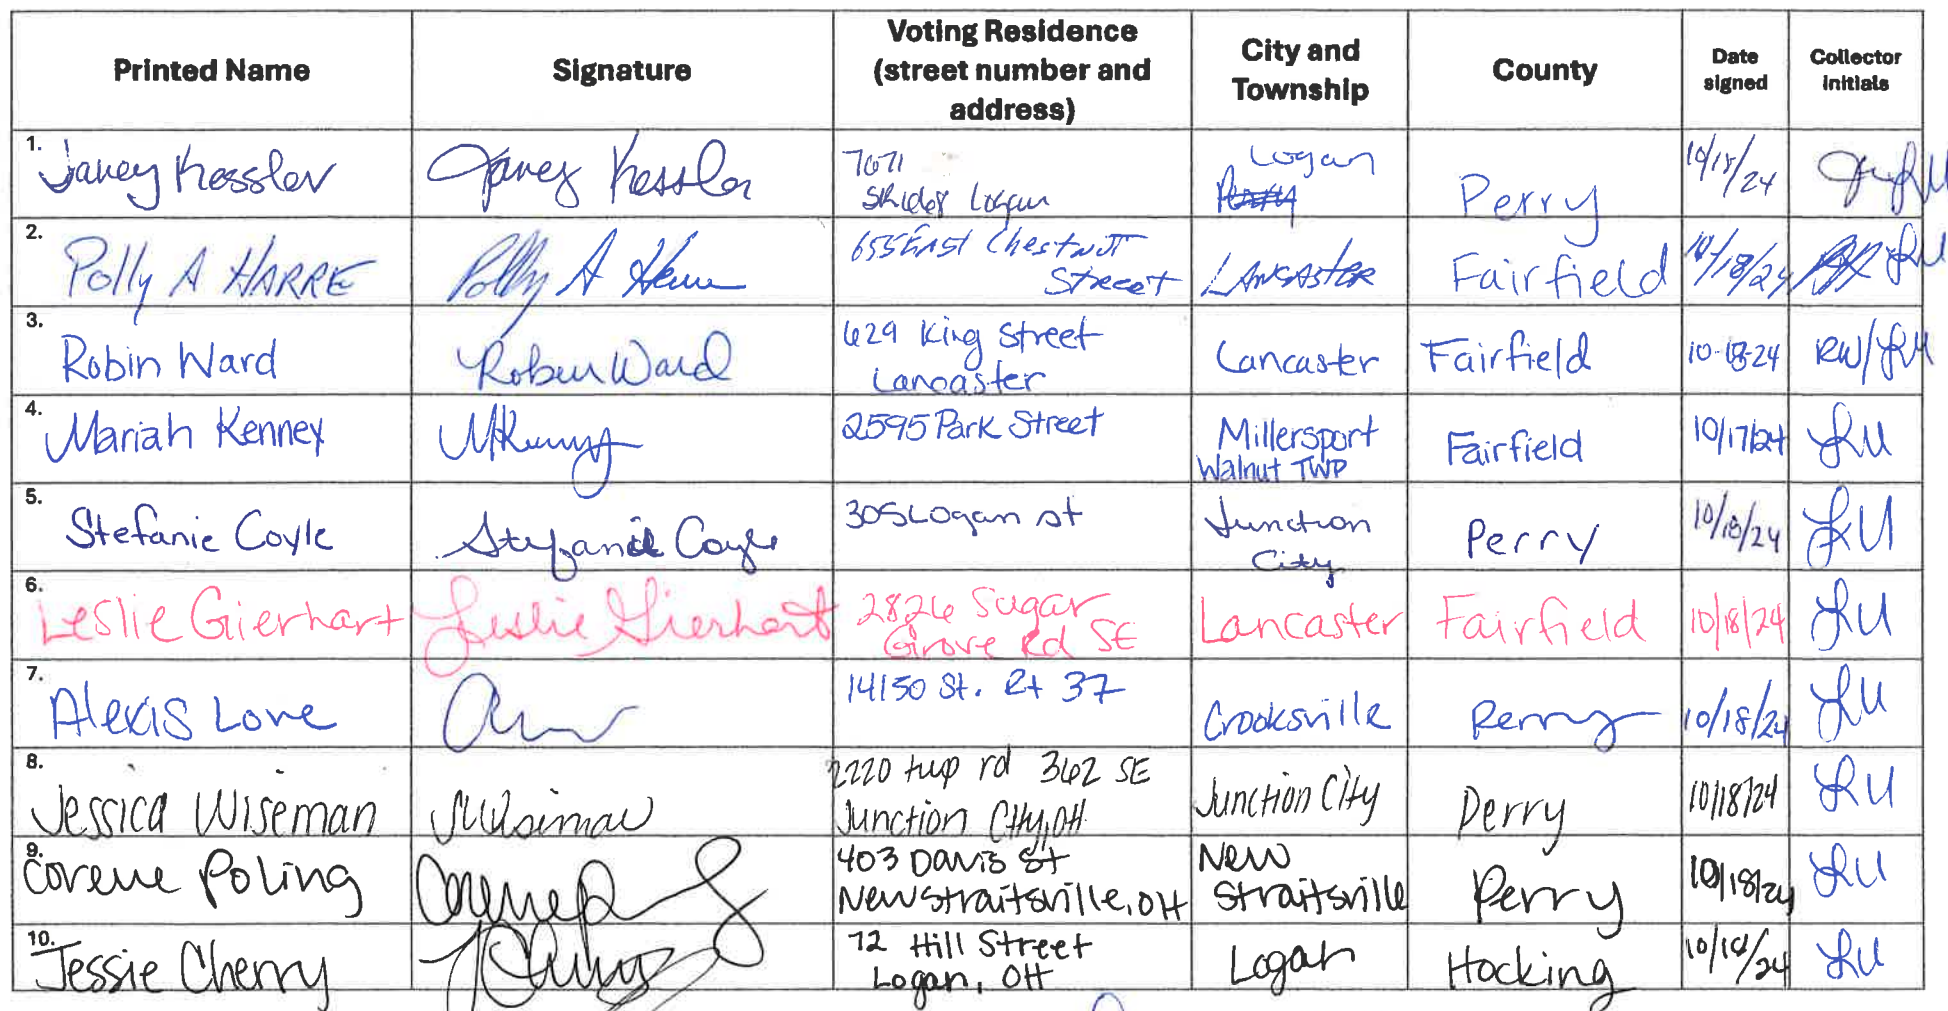 Printed Name
Signature
Voting Residence
(street number and
address)
City and
Township
County
Date
signed
Collector
initials
1.
Janey Kessler
Janey Kessler
7671
Logan
Logan
Perry
Perry
10/18/24
LU
2.
Polly A HARRE
Polly A
655 EAST Chestnutt
Street
LANCASTER
Fairfield
10/18/24
LU
3.
Robin Ward
Robin Ward
629 King Street
Lancaster
Lancaster
Fairfield
10-18-24
RW/LU
4.
Mariah Kenney
MKenney
2595 Park Street
Millersport
Walnut TWP
Fairfield
10/17/24
LU
5.
Stefanie Coyle
Stefanie Coyle
305 Logan st
Junction
City
Perry
10/18/24
LU
6.
Leslie Gierhart
Leslie Gierhart
2826 Sugar
Grove Rd SE
Lancaster
Fairfield
10/18/24
LU
7.
Alexis Love
14150 St. Rt 37
Crooksville
Perry
10/18/24
LU
8.
Jessica Wiseman
JWiseman
2220 twp rd 362 SE
Junction City, OH
Junction City
Perry
10/18/24
LU
9.
Corene Poling
403 Davis St
New Straitsville, OH
New
Straitsville
Perry
10/18/24
LU
10.
Jessie Cherry
72 Hill Street
Logan, OH
Logan
Hocking
10/18/24
LU